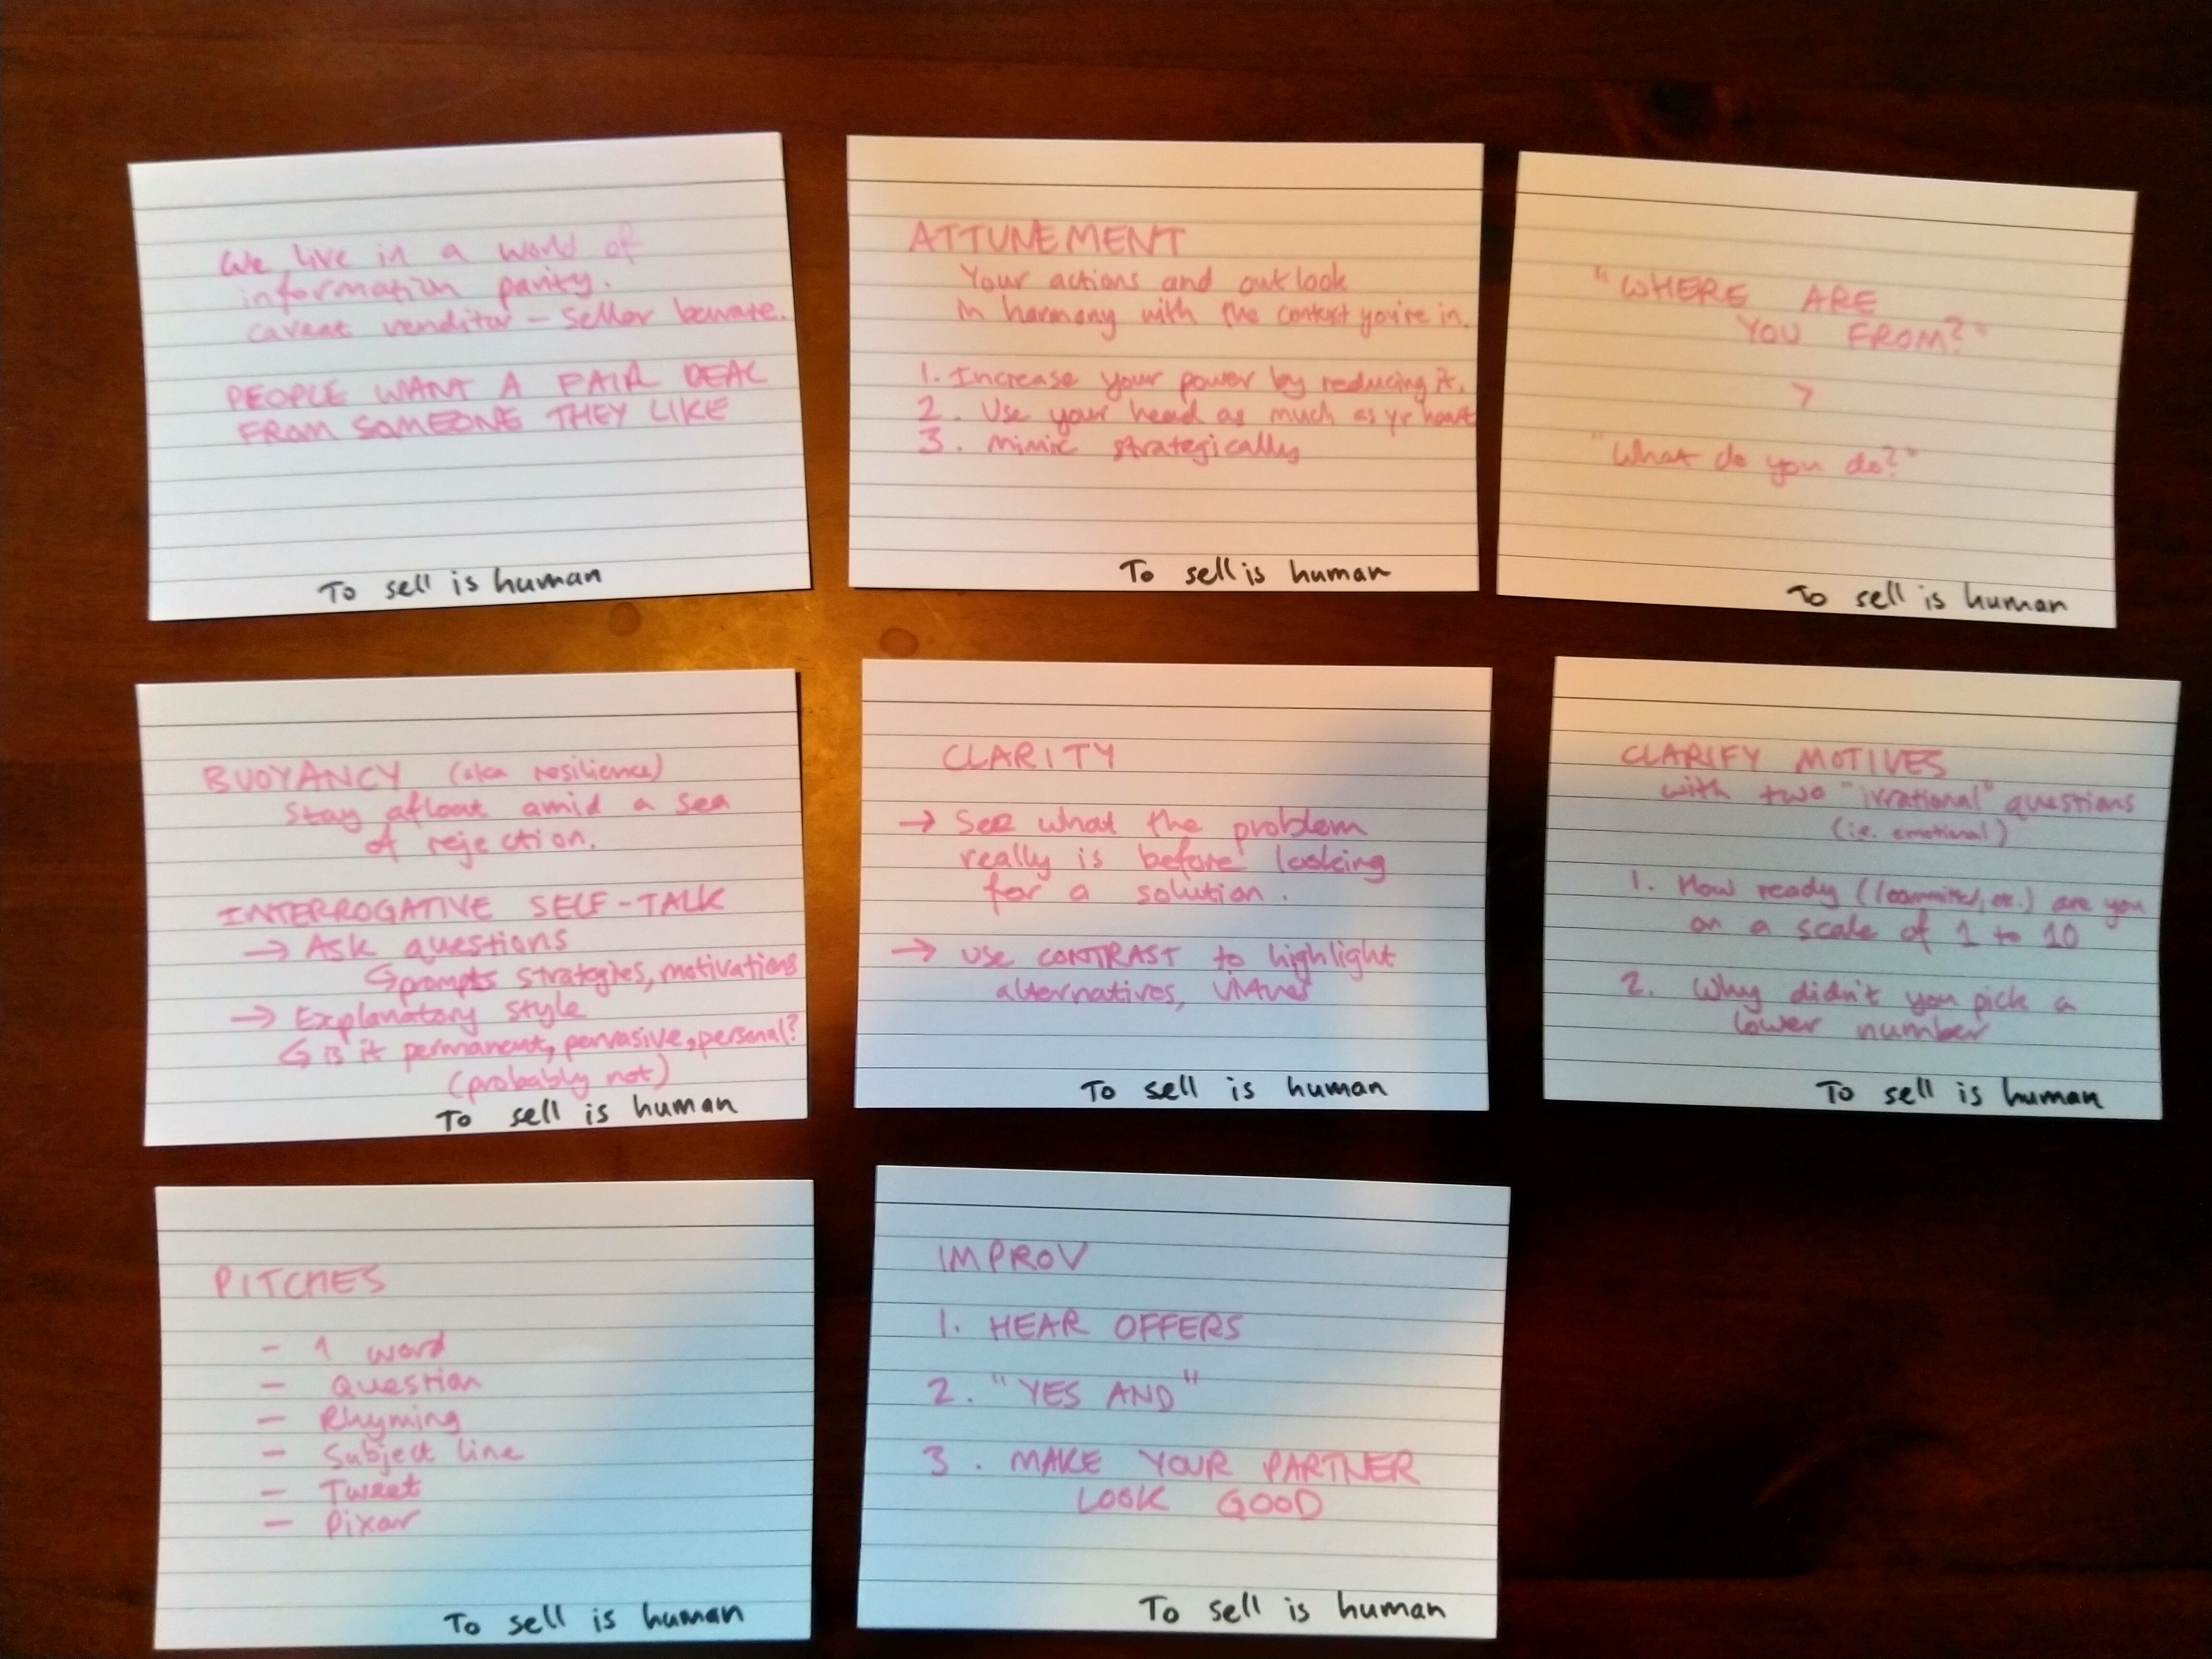 We live in a world of
information parity.
caveat venditor - seller beware.
PEOPLE WANT A FAIR DEAL
FROM SOMEONE THEY LIKE
To sell is human
ATTUNEMENT
Your actions and outlook
in harmony with the context you're in.
1. Increase your power by reducing it.
2. Use your head as much as yr heart
3. Mimic strategically
To sell is human
"WHERE ARE
YOU FROM?"
>
"What do you do?"
To sell is human
BUOYANCY (aka resilience)
Stay afloat amid a sea
of rejection.
INTERROGATIVE SELF-TALK
→ Ask questions
↳ prompts strategies, motivations
→ Explanatory style
↳ is it permanent, pervasive, personal?
(probably not)
To sell is human
CLARITY
→ See what the problem
really is before looking
for a solution.
→ Use CONTRAST to highlight
alternatives,
To sell is human
CLARIFY MOTIVES
with two "irrational" questions
(i.e. emotional)
1. How ready (/committed, etc.) are you
on a scale of 1 to 10
2. Why didn't you pick a
lower number
To sell is human
PITCHES
- 1 word
- Question
- Rhyming
- Subject line
- Tweet
- Pixar
To sell is human
IMPROV
1. HEAR OFFERS
2. "YES AND"
3. MAKE YOUR PARTNER
LOOK GOOD
To sell is human